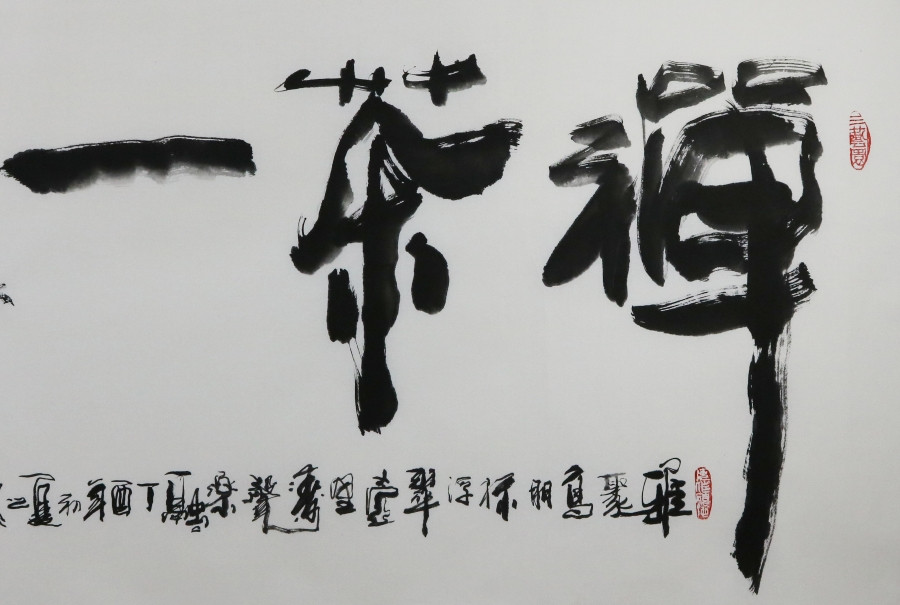 禪茶一
雅聚高朋採浮翠壺里濤聲樂融丁酉年初夏之